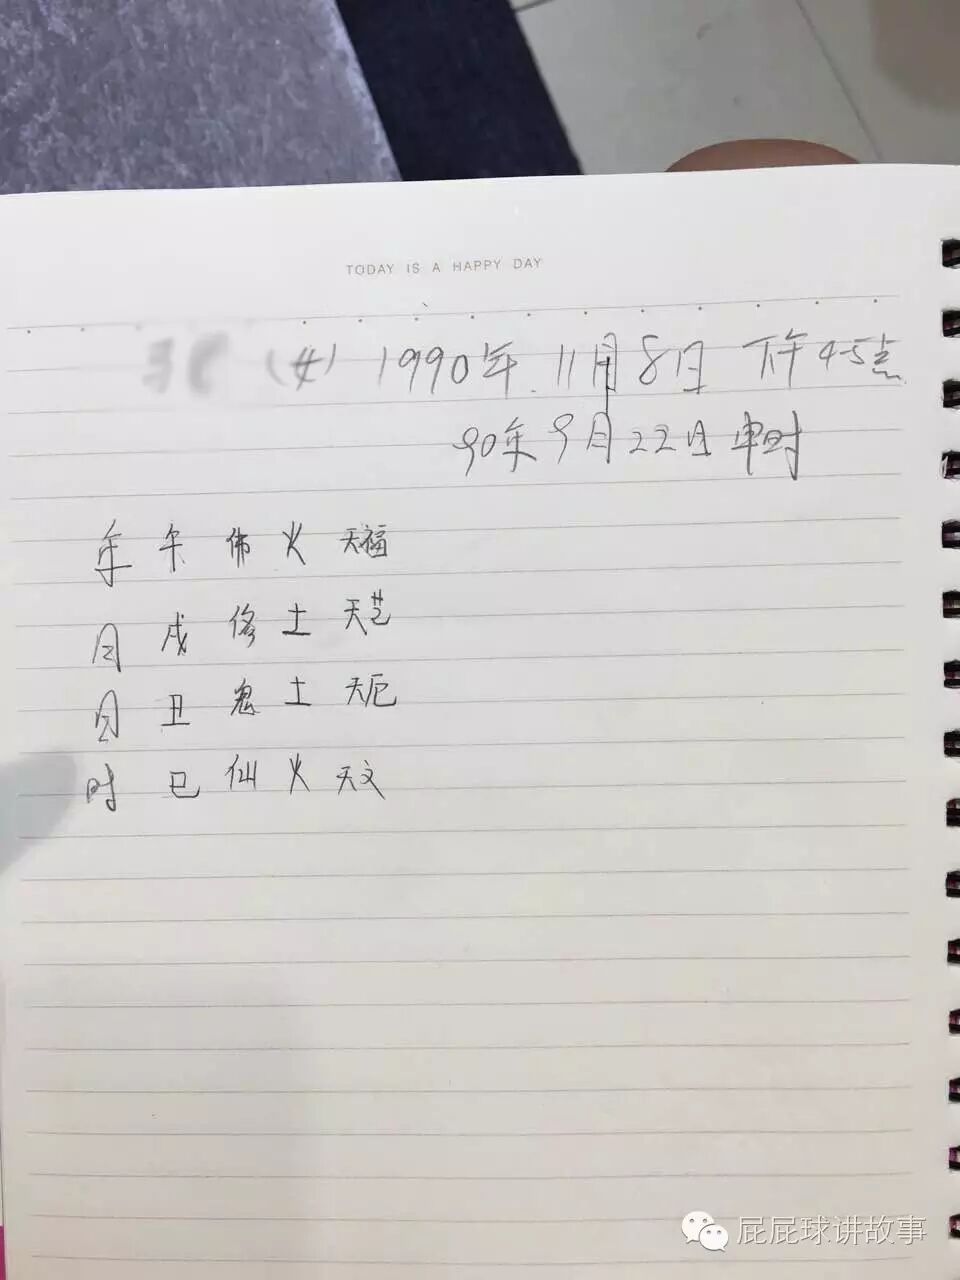 TODAY IS A HAPPY DAY
(女) 1990年.11月8日 下午4-5点
90年9月22日申时
年 午 佛 火 天福
月 戌 修 土 天艺
日 丑 鬼 土 天厄
时 巳 仙 火 天文
屁屁球讲故事